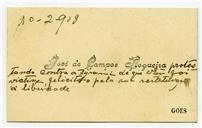 10-2-908
José de Campos Nogueira protes
tando contra a tyrania de que foi
victima felicita-o pela sua restituição
á liberdade
GOES